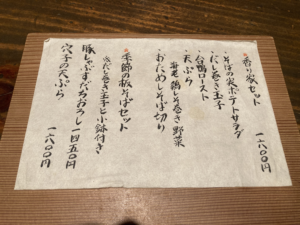 香り家セット 一八〇〇円
・そばの実ポテトサラダ
・だし巻き玉子
・合鴨ロースト
・天ぷら
海老 鶏しそ巻き 野菜
・おだめしそば切り
季節の板そばセット
だし巻き玉子と小鉢付き
豚しゃぶすだちおろし 一四五〇円
穴子の天ぷら 一六〇〇円